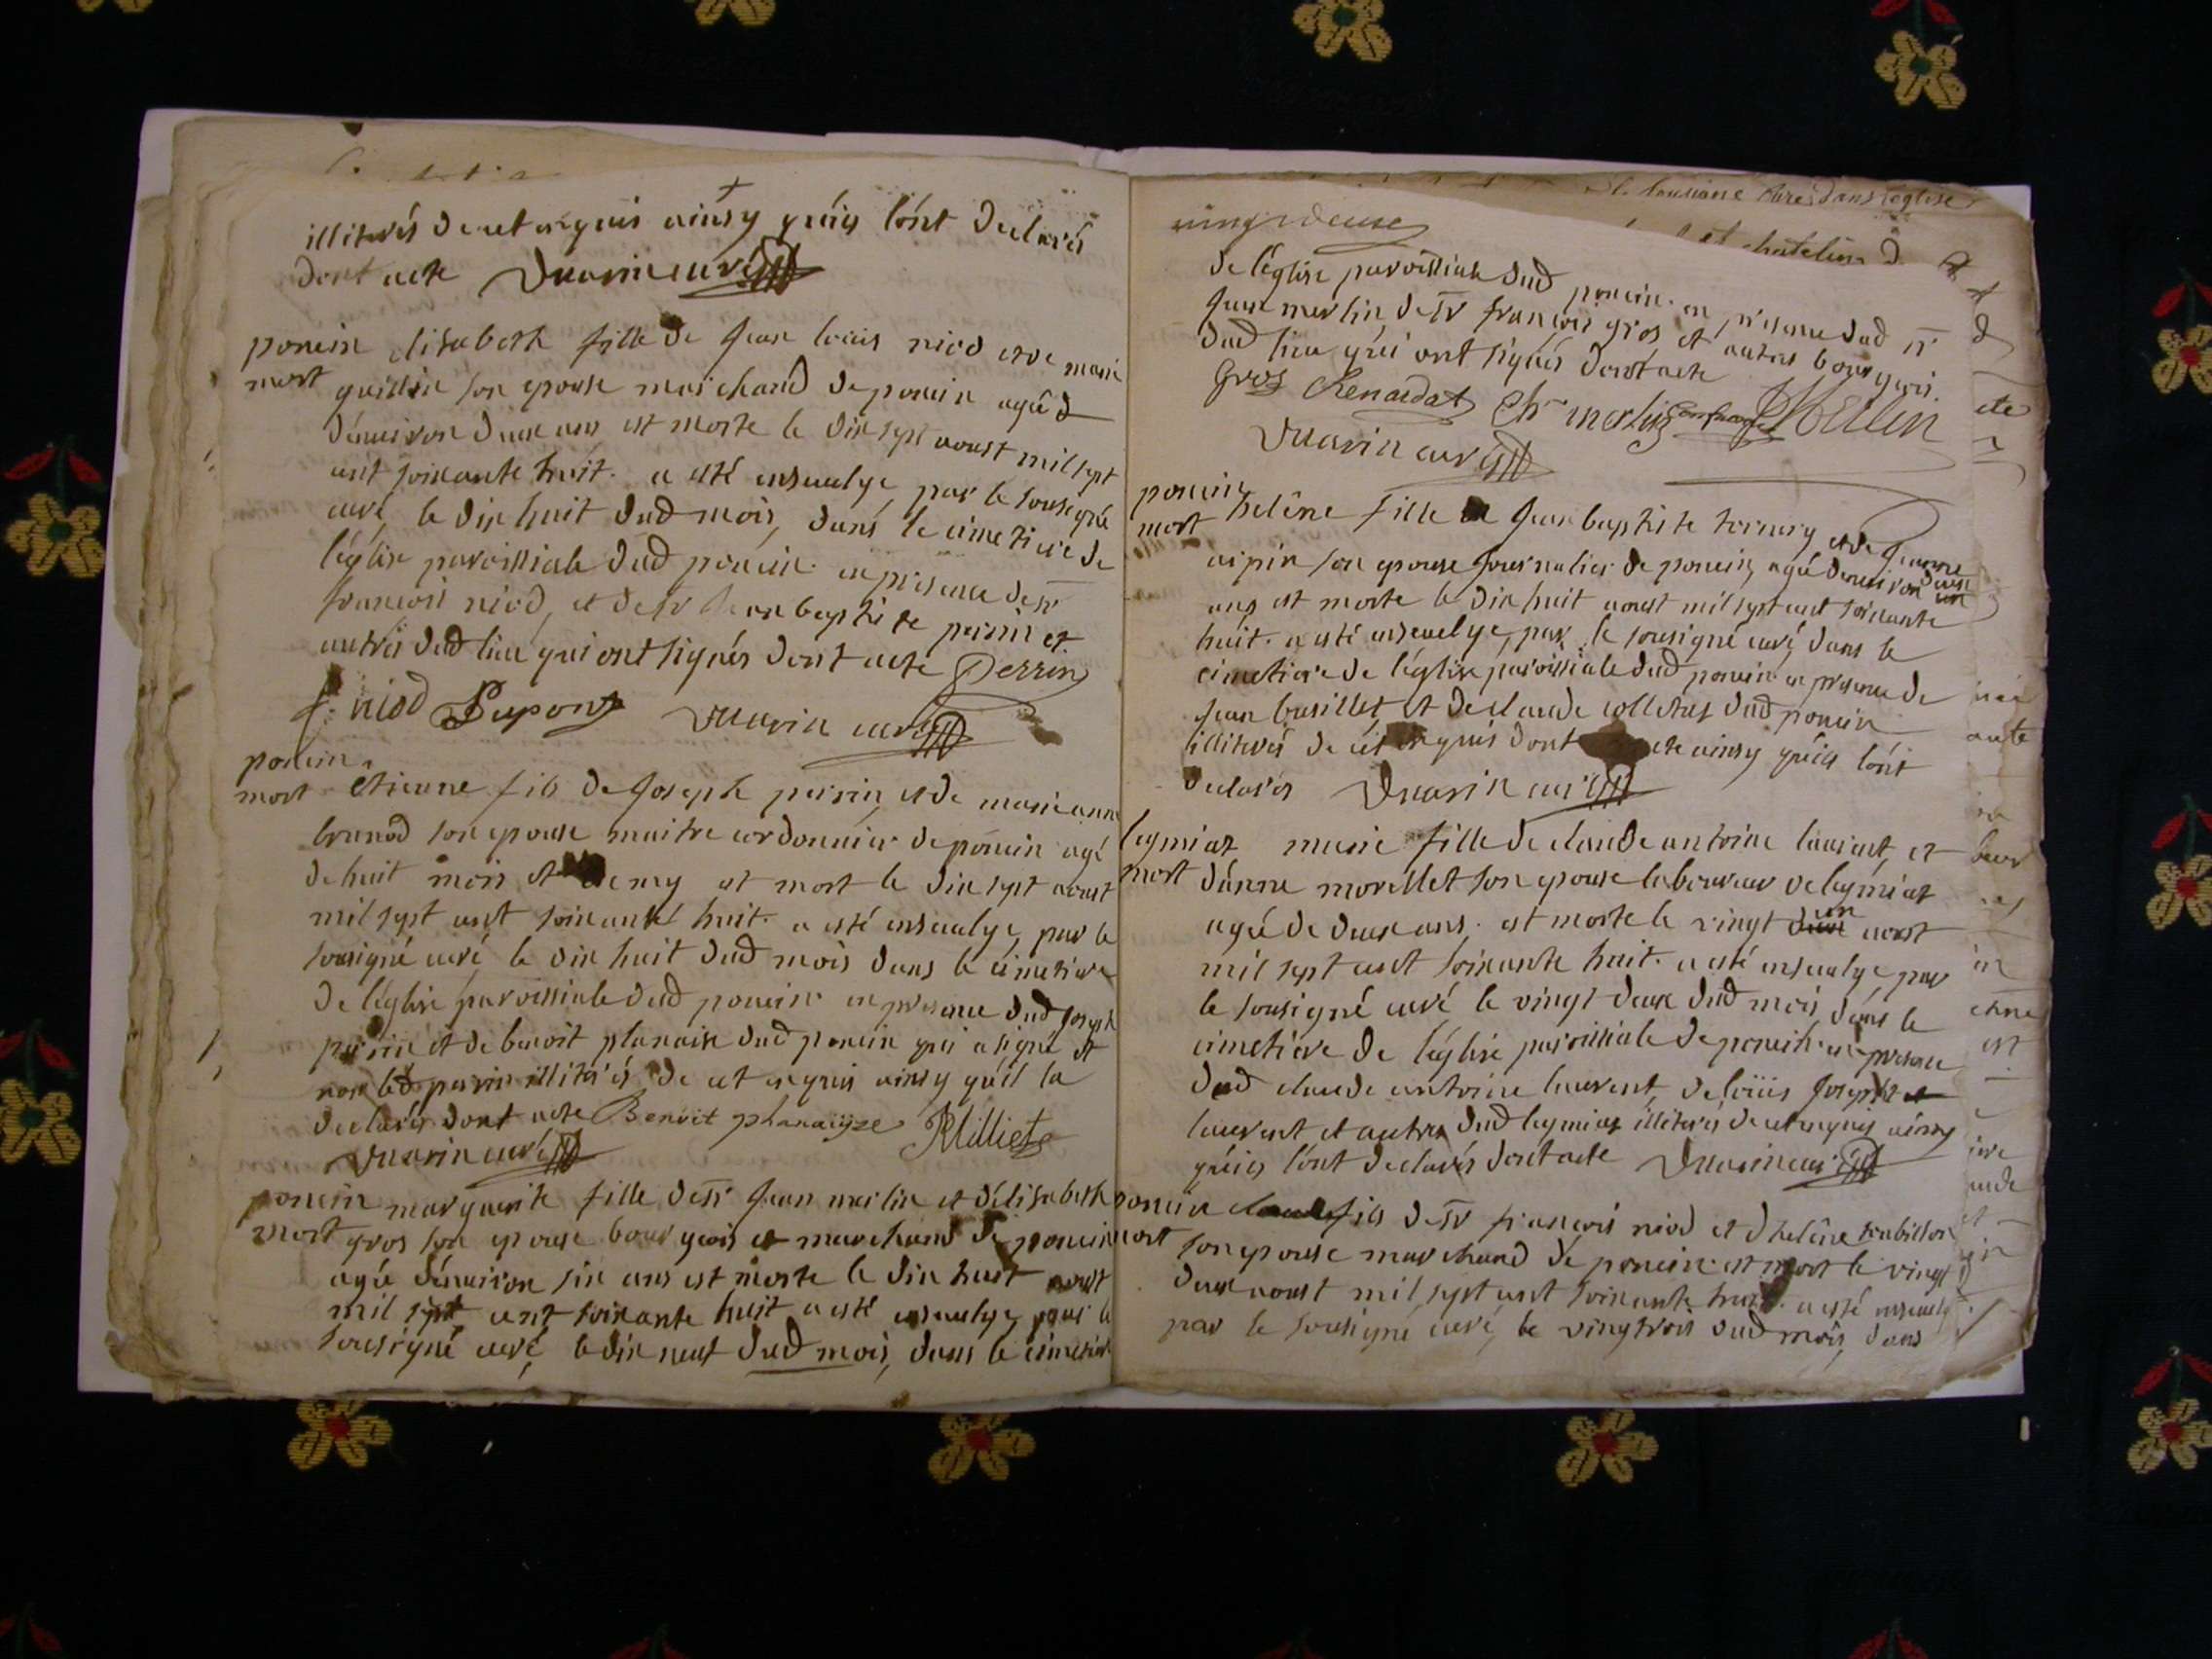 illiterés de cet enquis ainsy quils lónt declarés
dont acte Duarin curé
poncin elisabeth fille de Jean loüis niod et de marie
mort guillin son epouse marchand de poncin agéé
dénuiron deux ans est morte le dix sept aoust mil sept
cent soixante huit. a esté enseuelye, par le sousigné
curé, le dix huit dud mois, dans le cimetiere de
léglise paroissiale dud poncin. en presence de sr
francois niod, et de sr Jean baptiste perrin et
autres dud lieu qui ont signés dont acte Perrin
f: niod Dupont Duarin curé
poncin
mort etienne fils de Joseph perrin, et de marie anne
brunod son epouse maitre cordonnier de poncin agé
de huit mois et demy est mort le dix sept aoust
mil sept cent soixante huit. a esté enseuelye, par le
sousigné curé le dix huit dud mois dans le cimetiere
de léglise paroissiale dud poncin en presence dud Joseph
perrin et de benoit planaise dud poncin qui a signé et
non led perrin illiterés, de cet enquis ainsy quil la
declarés dont acte Benoit phanaize Milliet
Duarin curé
poncin marguerite fille de sr Jean merlin et délisabeth
mort gros son epouse bourgeois et marchand de poncin
agéé dénuiron six ans est morte le dix huit aoust
mil sept cent soixante huit a esté enseuelye, par le
sousigné curé, le dix neuf dud mois, dans le cimetiere
le lousiane Curé dans léglise
vingt deuse
de léglise paroissiale dud poncin. en presence dud sr
Jean merlin de sr francois gros et autres bourgeois
dud lieu qui ont signés dont acte
Gros Chenardat Ch merlin Merlin
Duarin curé
poncin
mort helêne fille de Jean baptiste ternery et de Jeanne
aspin son epouse Journalier de poncin, agéé denuiron deux
ans est morte le dix huit aoust mil sept cent soixante
huit. a esté enseuelye, par le sousigné curé, dans le
cimetiere de léglise paroissiale dud poncin en presence de
Jean busillet et de claude colletus dud poncin
illiterés de cet enquis dont acte ainsy quils lónt
declarés Duarin curé
legmiat marie fille de claude antoine laurent, et
mort dánne morellet son epouse laboureur de legmiat
agéé de deux ans. est morte le vingt un aoust
mil sept cent soixante huit. a esté enseuelye, par
le sousigné curé le vingt deux dud mois, dans le
cimetiere de léglise paroissiale de poncin. en presence
dud claude antoine laurent, de loüis Joseph
laurent et autres dud legmiat illiterés de cet enquis ainsy
quils lónt declarés dont acte Duarin curé
poncin claude fils de sr francois niod et dhelêne
mort son epouse marchand de poncin est mort le vingt
deux aoust mil sept cent soixante huit. a esté enseuely
par le sousigné curé, le vingtrois dud mois, dans